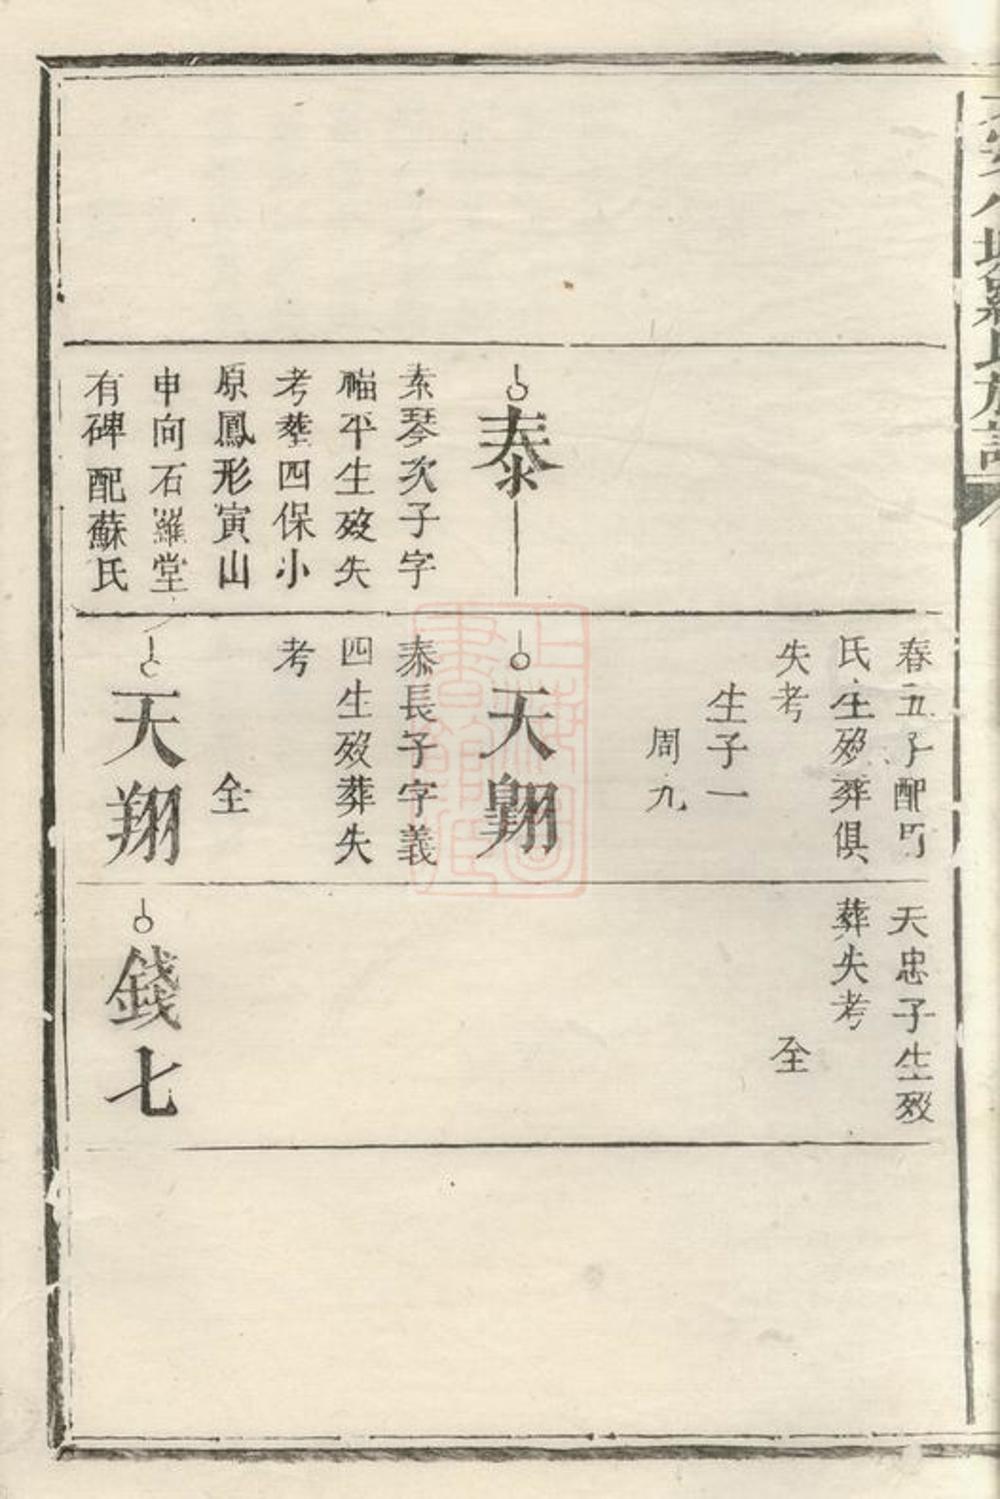 羅氏族譜
泰
素琴次子字
福平生歿失
考塟四保小
原鳳形寅山
申向石羅堂
有碑配蘇氏
春五子配
氏生歿葬俱
失考
生子一
周九
天翱
泰長子字義
四生歿葬失
考
全
天翔
天忠子生歿
葬失考
全
錢七
上海圖
書館藏